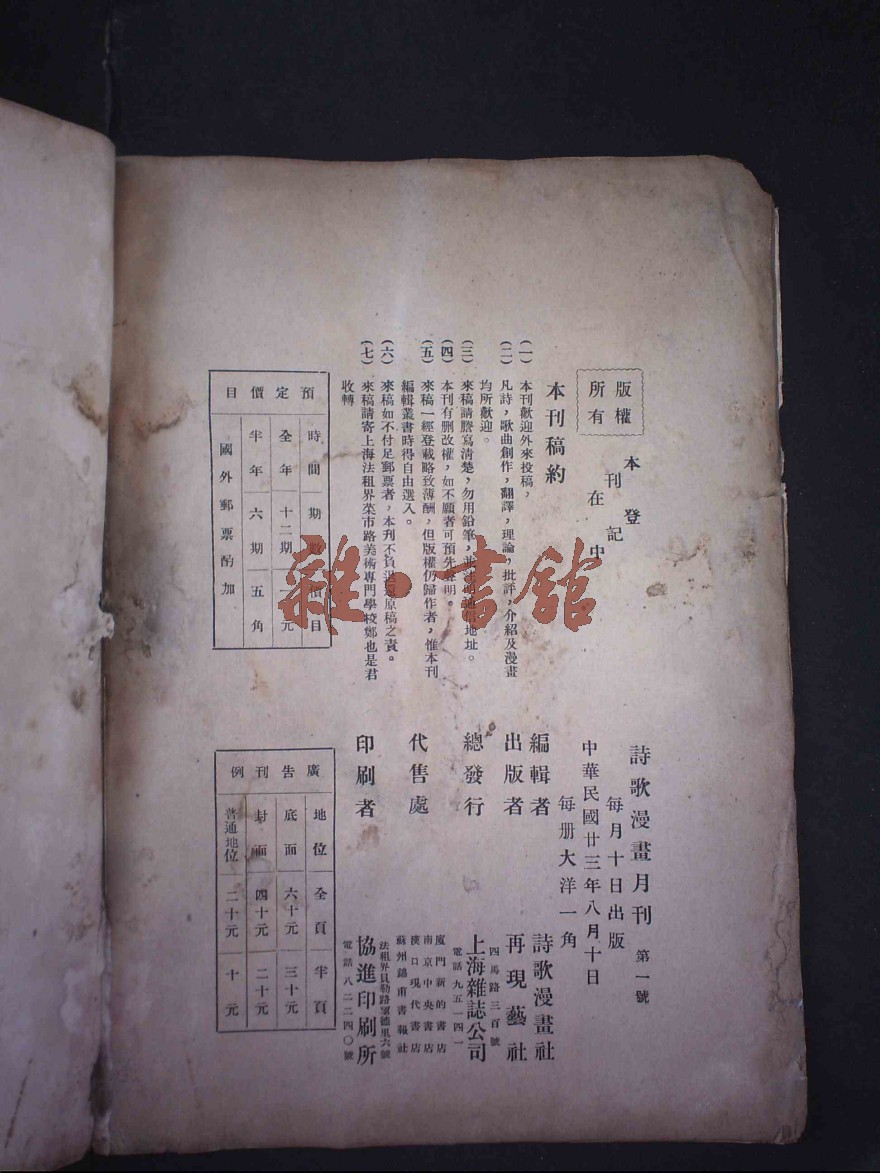 版權
所有
本刊在登記中
本刊稿約
(一) 本刊歡迎外來投稿，
(二) 凡詩，歌曲創作，翻譯，理論，批評，介紹及漫畫
均所歡迎。
(三) 來稿請謄寫清楚，勿用鉛筆，並註明通信地址。
(四) 本刊有刪改權，如不願者可預先聲明。
(五) 來稿一經登載略致薄酬，但版權仍歸作者，惟本刊
編輯叢書時得自由選入。
(六) 來稿如不付足郵票者，本刋不負退還原稿之責。
(七) 來稿請寄上海法租界菜市路美術專門學校鄭也是君
收轉
預定價目
時間 期數 價目
全年 十二期 元
半年 六期 五角
國外郵票酌加
詩歌漫畫月刊 第一號
每月十日出版
中華民國廿三年八月十日
每册大洋一角
編輯者 詩歌漫畫社
出版者 再現藝社
總發行 四馬路三百號
上海雜誌公司
電話九五一四一
代售處 廈門新的書店
南京中央書店
漢口現代書店
蘇州錦甫書報社
印刷者 法租界貝勒路 德里六號
協進印刷所
電話八二二四〇號
廣告刊例
地位 全頁 半頁
底面 六十元 三十元
封面 四十元 二十元
普通地位 二十元 十元
雜·書館